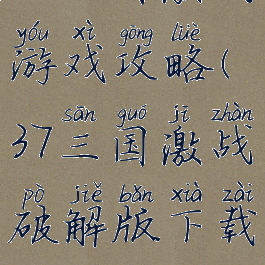 yóu xì gōng lüè
游戏攻略(
sān guó jī zhàn
37三国激战
pò jiě bǎn xià zài
破解版下载